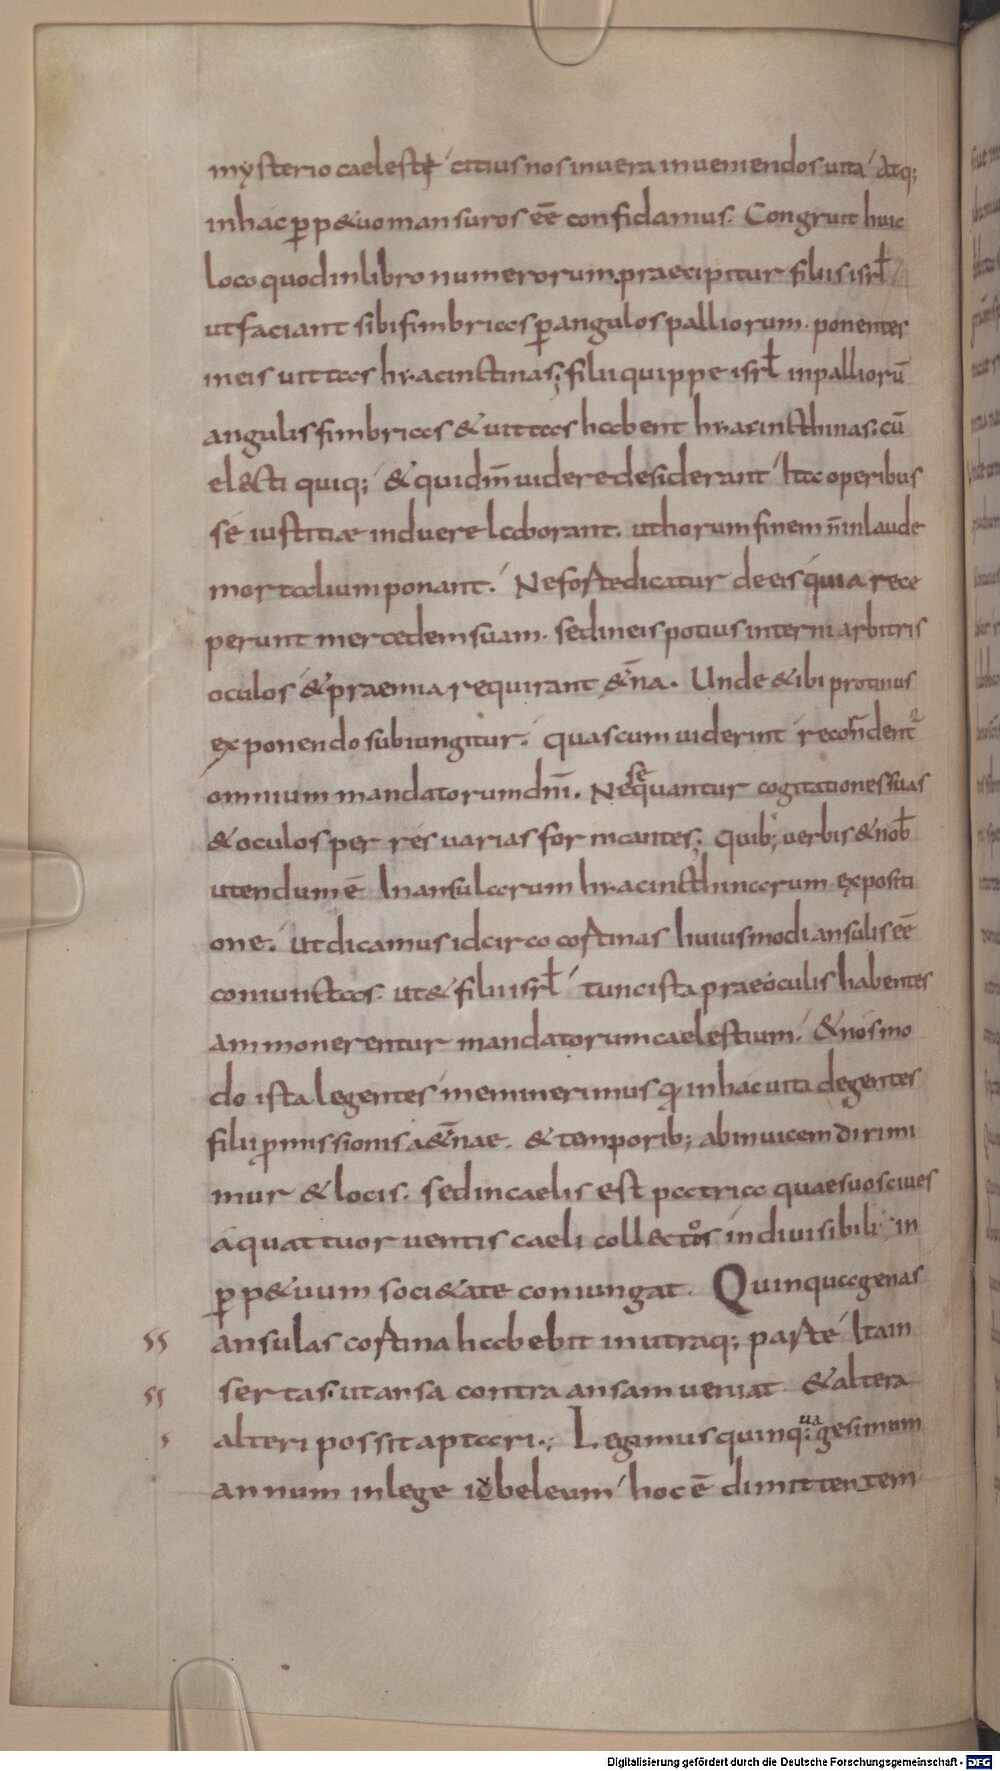 mysterio caeleste citius nos in vera inveniendos vita Atq;
in hac ꝑp&uo mansuros eē confidamus. Congruit huic
loco quod in libro numerorum praecipitur filiis isrl̄
ut faciant sibi fimbrias ꝑ angulos palliorum. ponentes
in eis uittas hyacinctinas; filii quippe isrl̄ in palliorū
angulis fimbrias & uittas habent hyacincthinas. cū
electi quiq; & quidm̄ uidere desiderant hic operibus
se iustitiae induere laborant. ut horum finem n̄ in laude
mortalium ponant. Ne forte dicatur de eis quia rece
perunt mercedem suam. sed in eis potius interni arbitris
oculos & praemia requirant &ēna. Unde & ibi protinus
exponendo subiungitur. quas cum uiderint recordent᷑
omnium mandatorum dnī. Ne sequantur cogitationes suas
& oculos per res uarias fornicantes; Quib; uerbis & nob̄
utendum ē In ansularum hyacincthinarum expositi
one. Ut dicamus idcirco cortinas huiusmodi ansulis eē
coniunctas. ut & filii isrl̄ tunc ista prae oculis habentes
ammonerentur mandatorum caelestium. & nos mo
do ista legentes meminerimus qꝫ in hac uita degentes
filii ꝓmissionis a&ēnae. & temporib; ab inuicem dirimi
mur & locis. sed in caelis est patria quae suos ciues
a quattuor uentis caeli collectos indiuisibili in
ꝑp&uum soci&ate coniungat. Quinquagenas
ss ansulas cortina habebit in utraq; parte Ita in
ss sertas. ut ansa contra ansam ueniat & altera
s alteri possit aptari.; Legimus quinq;uagesimum
annum in lege iobeleum hoc ē dimittentem
Digitalisierung gefördert durch die Deutsche Forschungsgemeinschaft - DFG